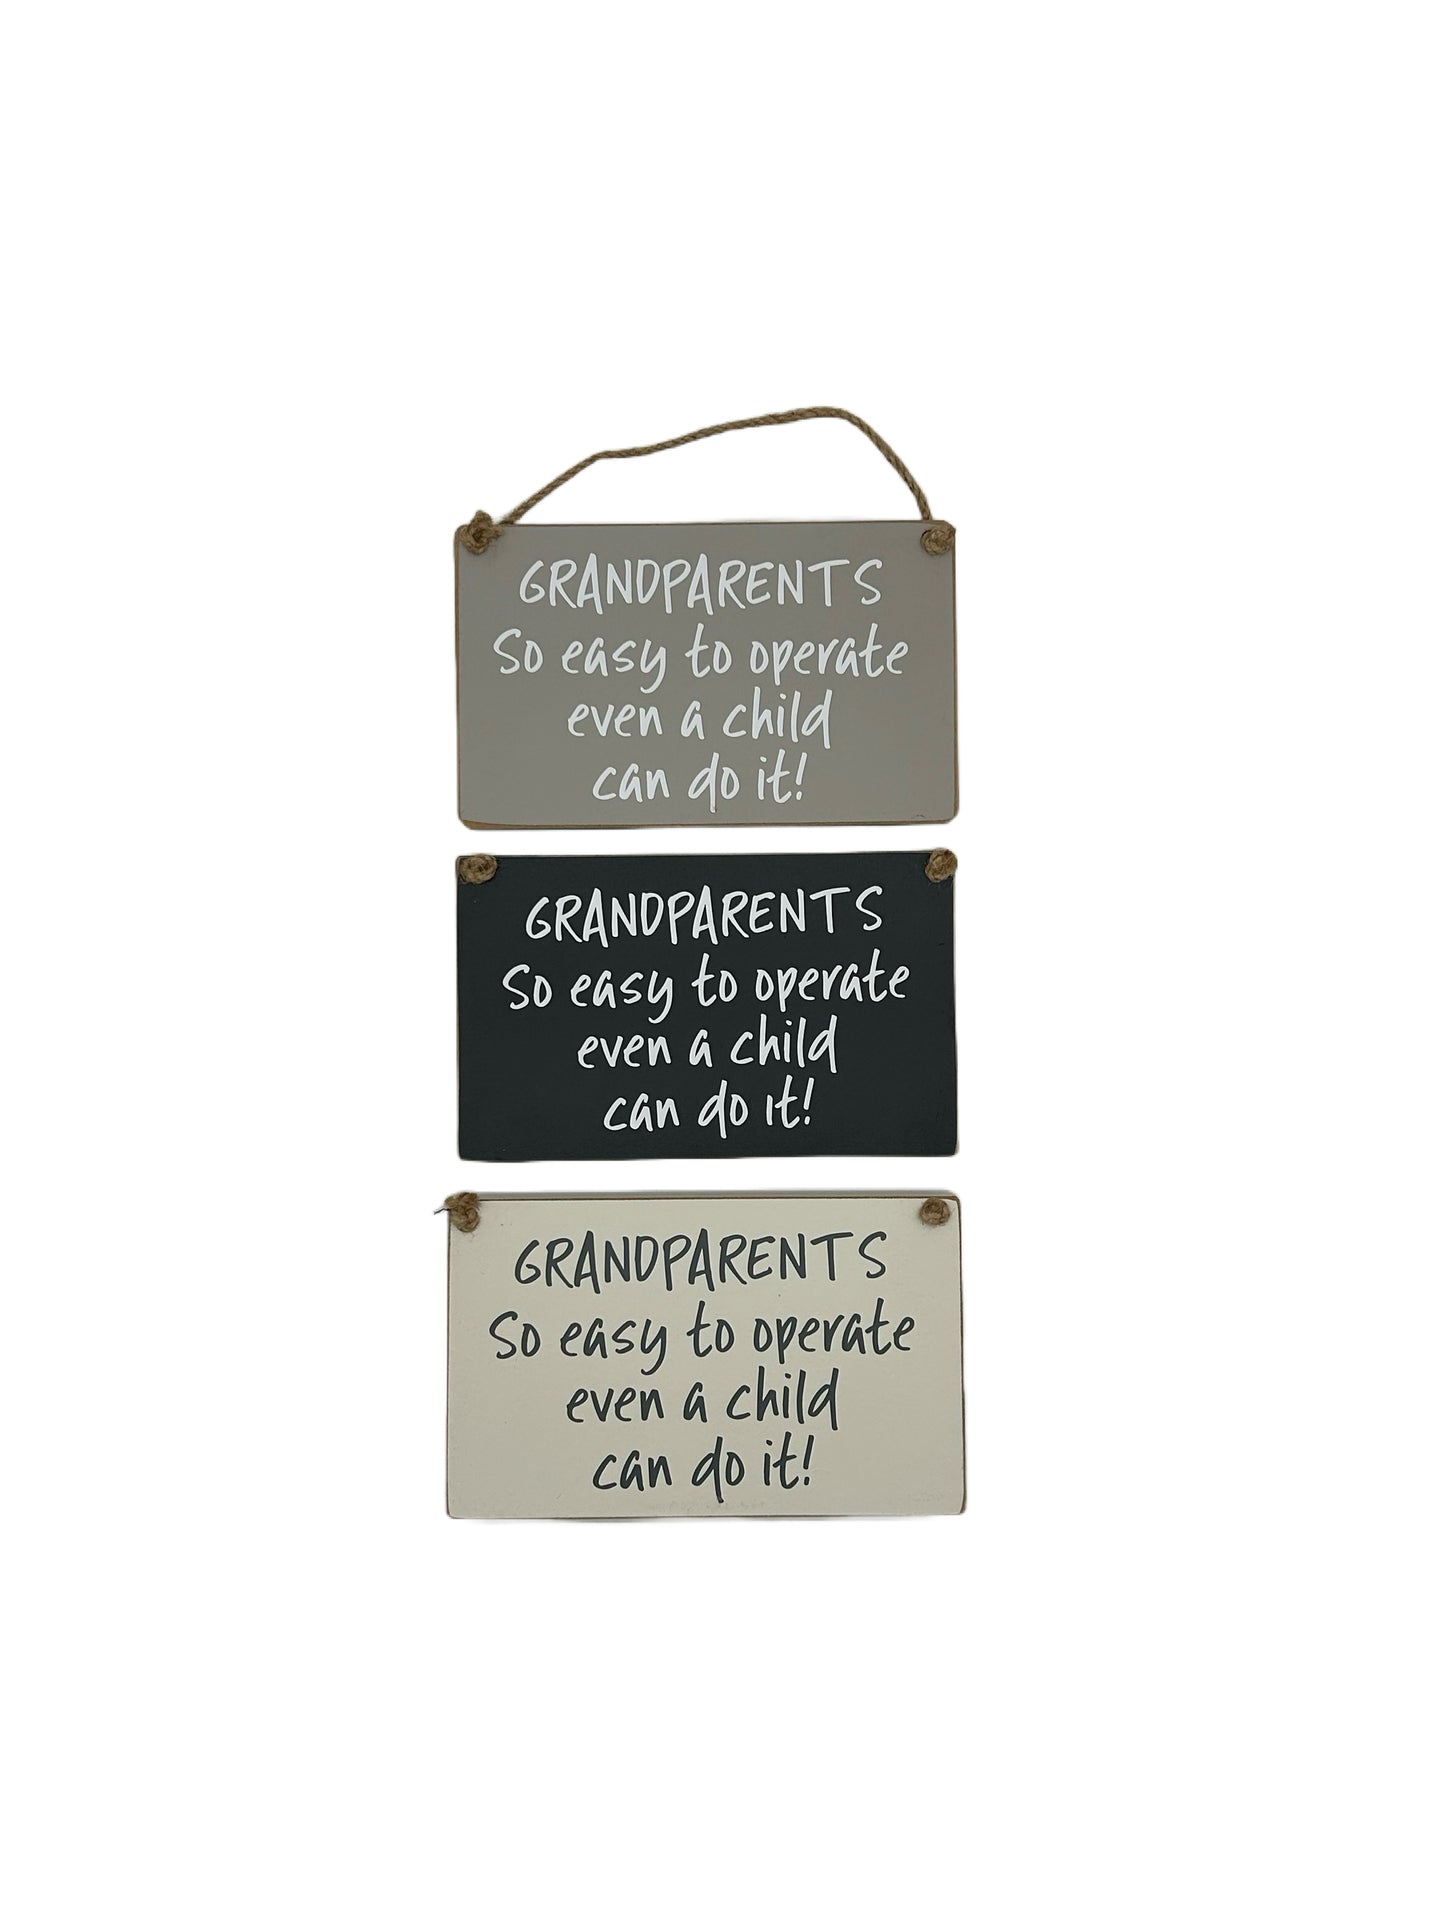 GRANDPARENTS
So easy to operate
even a child
can do it!
GRANDPARENTS
So easy to operate
even a child
can do it!
GRANDPARENTS
So easy to operate
even a child
can do it!